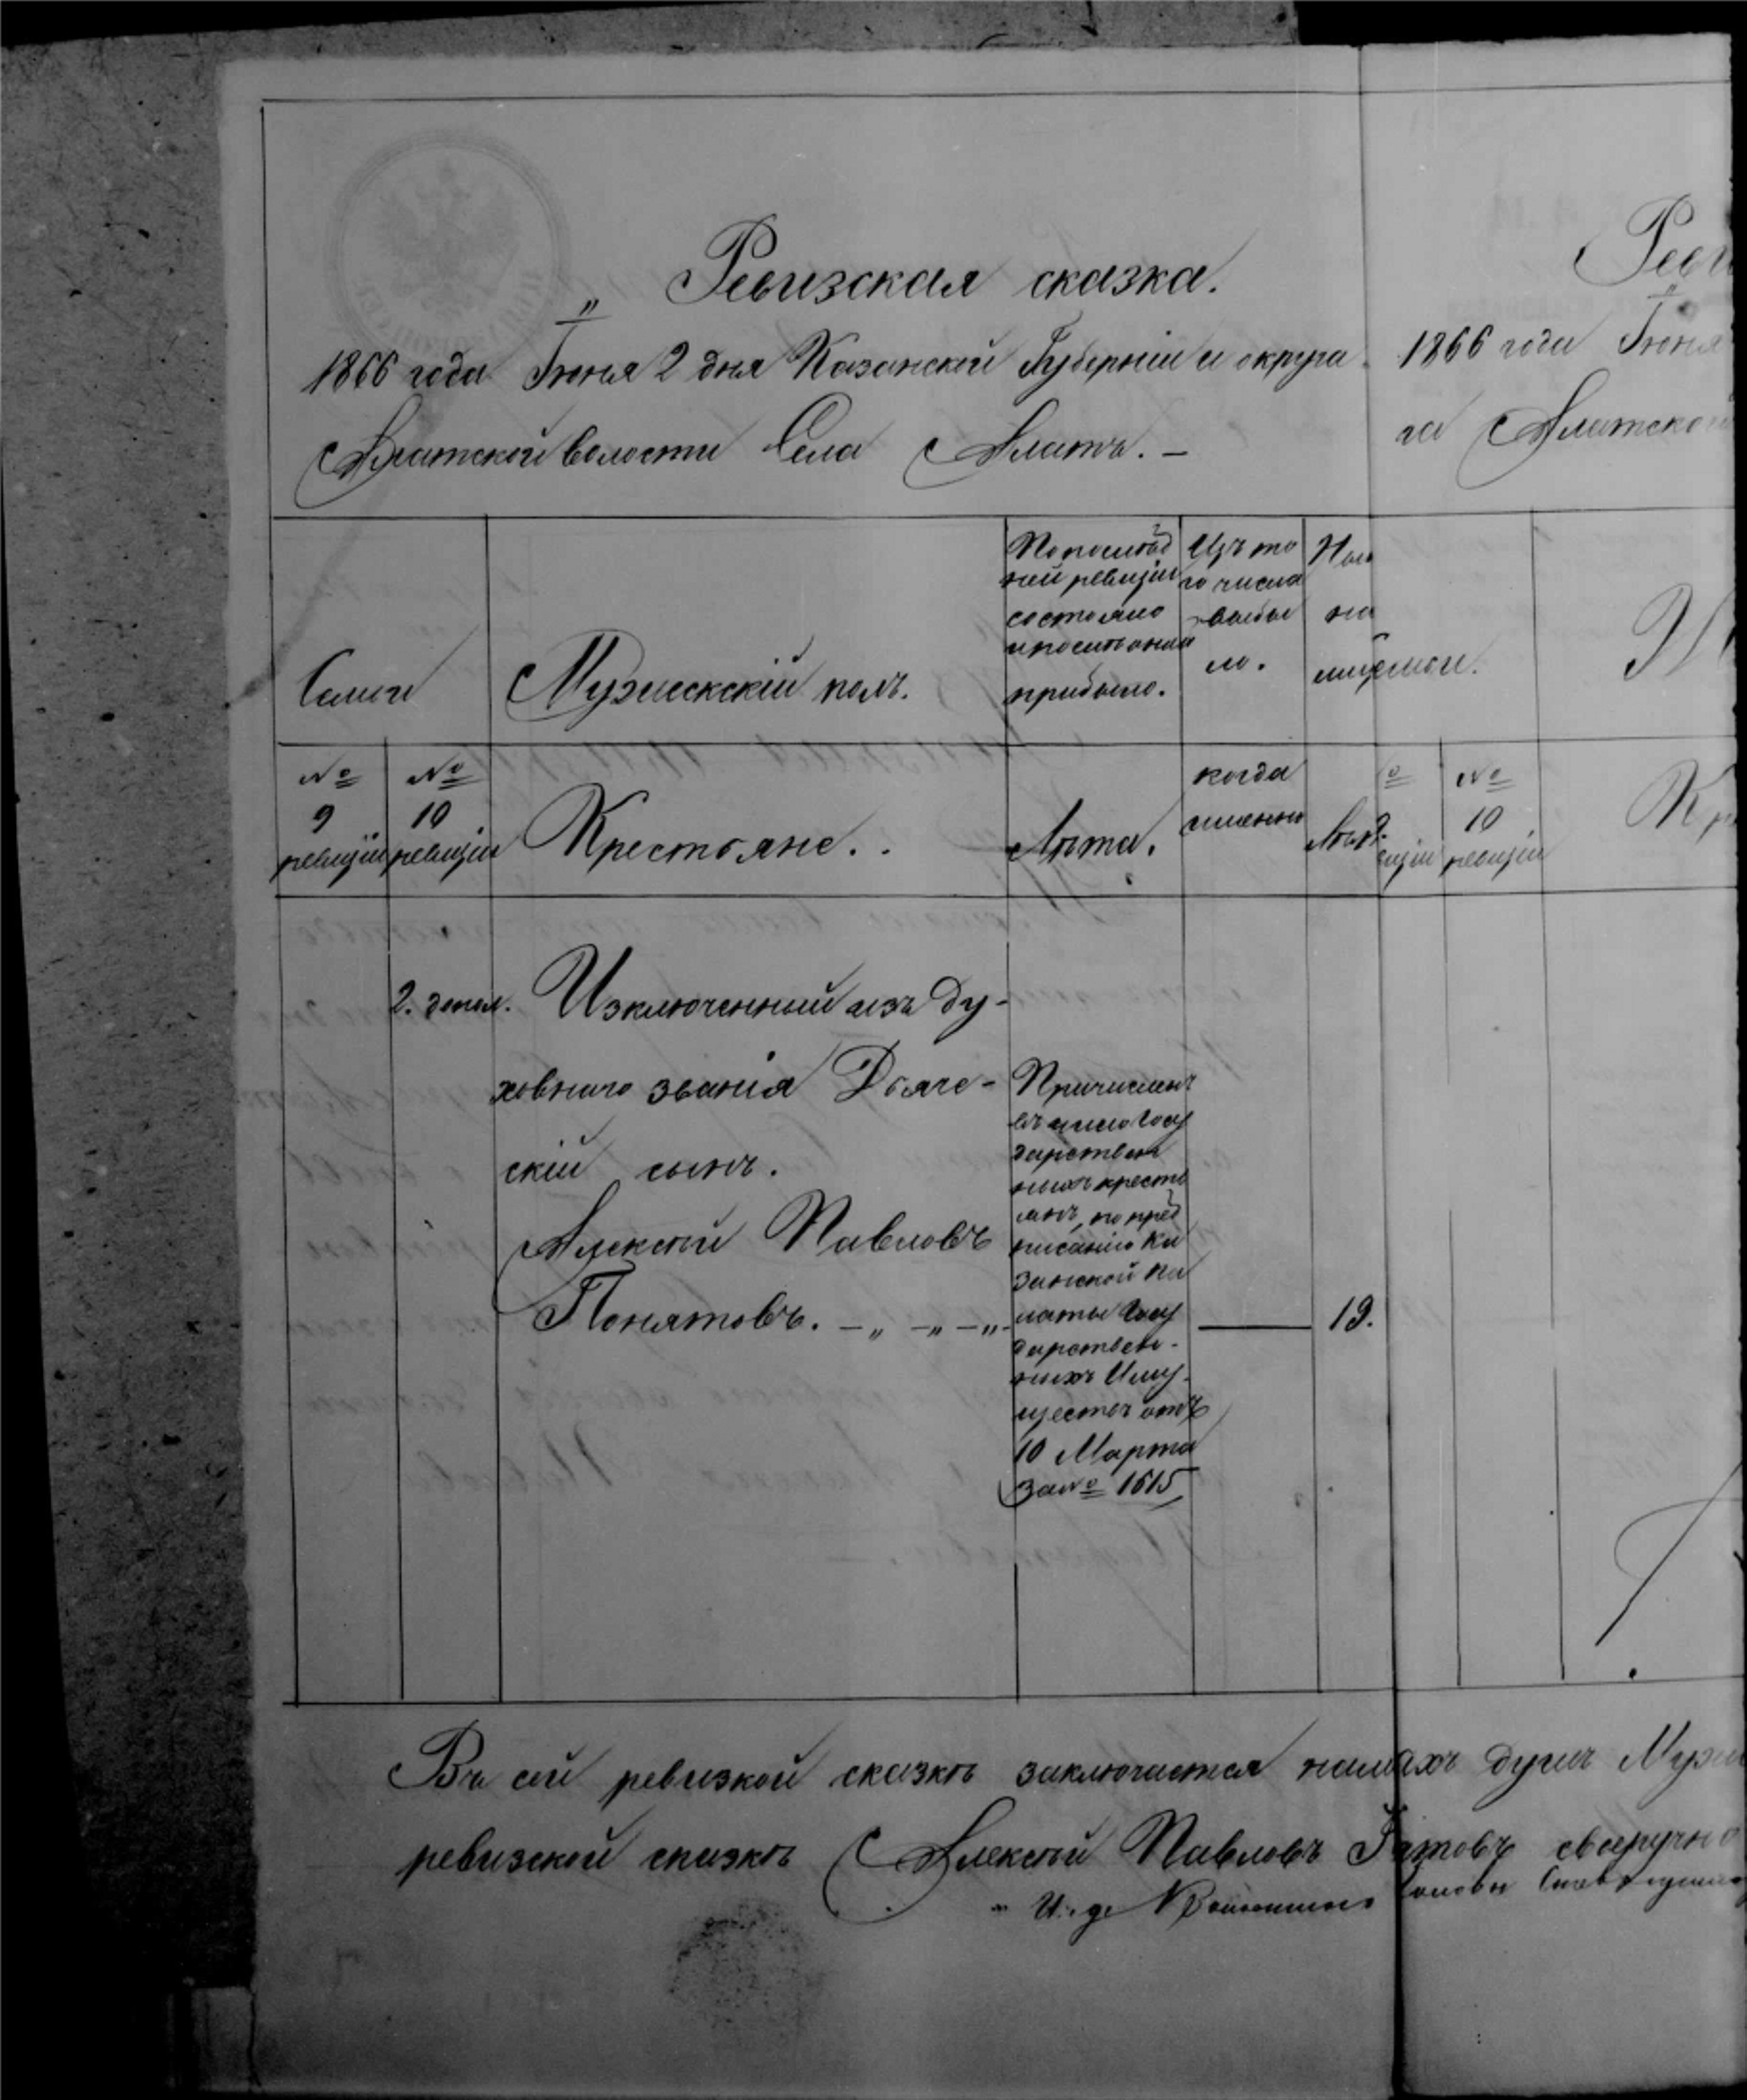 Ревизская сказка.
1866 года Іюня 2 дня Казанской Губерніи и округа
Алатской волости Села Алатъ. —
Семьи
Мужескскій полъ.
По послѣд
ней ревизіи
состояло
и послѣ оной
прибыло.
Изъ то
го числа
выбы
ло.
Нынѣ
на
лицо
№ 9 ревизіи
№ 10 ревизіи
Крестьяне.
Лѣта.
когда
именно
Лѣта.
2. допол.
Изключенный изъ ду-
ховнаго званія Дьяче-
скій сынъ.
Алексѣй Павловъ
Понятовъ. —„—„—„
Причисленъ
въ число Госу
дарствен
ныхъ кресть
янъ, по пред
писанію Ка
занской па
латы Госу
дарствен-
ныхъ Иму-
ществъ отъ
10 Марта
за № 1615
19.
Въ сей ревизкой сказкѣ заключается налицо душъ Муж
ревизской сказкѣ Алексѣй Павловъ своеручно
И. д.
Реви
1866 года Іюня
га Алатской
№ 10 ревизіи
Кр